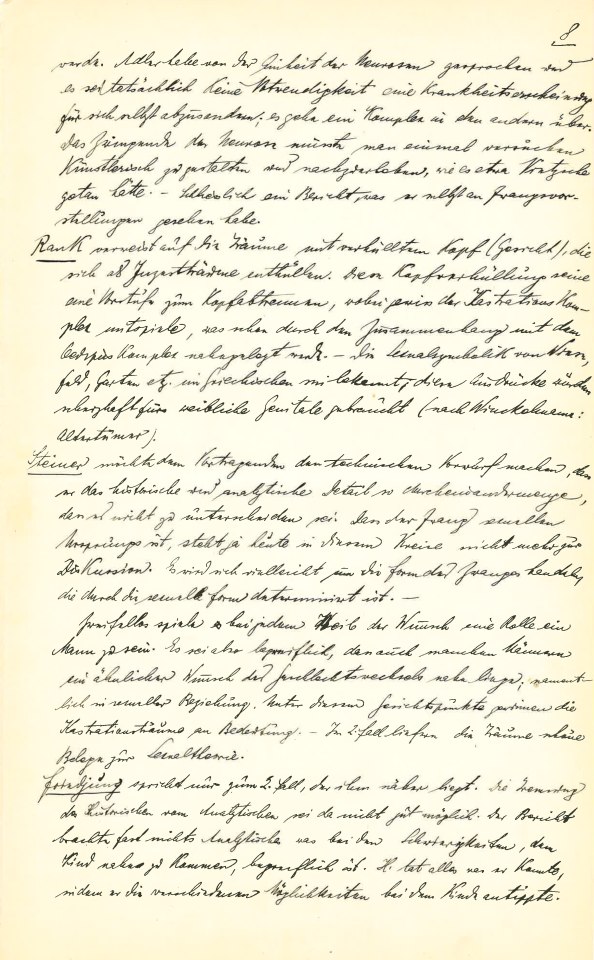 8
werde. Adler habe von der Einheit der Neurosen gesprochen und
es sei tatsächlich keine Notwendigkeit eine Krankheitserscheinung
für sich selbst abzusondern; es gehe ein Komplex in den andern über.
Das Zwingende der Neurose müsste man einmal versuchen
künstlerisch zu gestalten und nachzuerleben, wie es etwa Nietzsche
getan hätte. – Schliesslich ein Bericht, was er selbst an Zwangsvor-
stellungen gesehen habe.
Rank verweist auf die Träume mit verhülltem Kopf (Gesicht), die
sich als Inzestträume enthüllen. Diese Kopfverhüllung seine
eine Vorstufe zum Kopfabtrennen, wobei gewiss der Kastrations Kom-
plex mitspiele, was schon durch den Zusammenhang mit dem
Oedipus Komplex nahegelegt werde. – Die Sexualsymbolik von Wiese,
Feld, Garten etz. im Griechischen sei bekannt; diese Ausdrücke würden
scherzhaft fürs weibliche Genitale gebraucht (nach Winckelmann:
Altertümer).
Steiner möchte dem Vortragenden den technischen Vorwurf machen, dass
er das historische und analytische Detail so durcheinandermenge,
dass es nicht zu unterscheiden sei. Dass der Zwang sexuellen
Ursprungs ist, steht ja heute in diesem Kreise nicht mehr zur
Diskussion. Es wird sich vielleicht um die Form des Zwanges handeln,
die durch die sexuelle Form determiniert ist. –
Zweifellos spiele es bei jedem Weib der Wunsch eine Rolle ein
Mann zu sein. Es sei also begreiflich, dass auch manchen Männern
ein ähnlicher Wunsch des Geschlechtswechsels nahe liege, nament-
lich in sexueller Beziehung. Unter diesem Gesichtspunkte gewinnen die
Kastrationsträume an Bedeutung. – Im 2. Fall liefern die Träume schöne
Belege zur Sexualtheorie.
Friedjung spricht nur zum 2. Fall, der ihm näher liegt. Die Trennung
des Historischen vom Analytischen sei da nicht gut möglich. Der Bericht
brachte fast nichts Analytisches was bei den Schwierigkeiten, dem
Kind nahe zu kommen, begreiflich ist. H. tat alles was er konnte,
indem er die verschiedenen Möglichkeiten bei dem Kinde antippte.